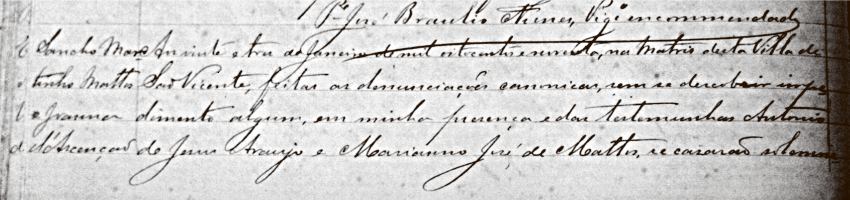 Pe José Braulio Nunes, Vigo encommendado
Sancho Mar Aos vinte e tres de Janeiro de mil oitocentos e noventa, na Matriz desta Villa de
tinho Mattos São Vicente, feitas as denunciações canonicas, sem se descobrir impe
e Joanna dimento algum, em minha presença e das testemunhas Antonio
d'Ascenção de Jesus Araujo e Marianno José de Mattos, se casarão solemne